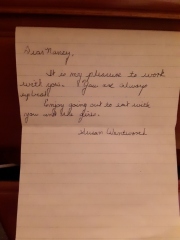 Dear Nancy,
It is my pleasure to work
with you. You are always
upbeat.
Enjoy going out to eat with
you and the girls.
Susan Wentworth